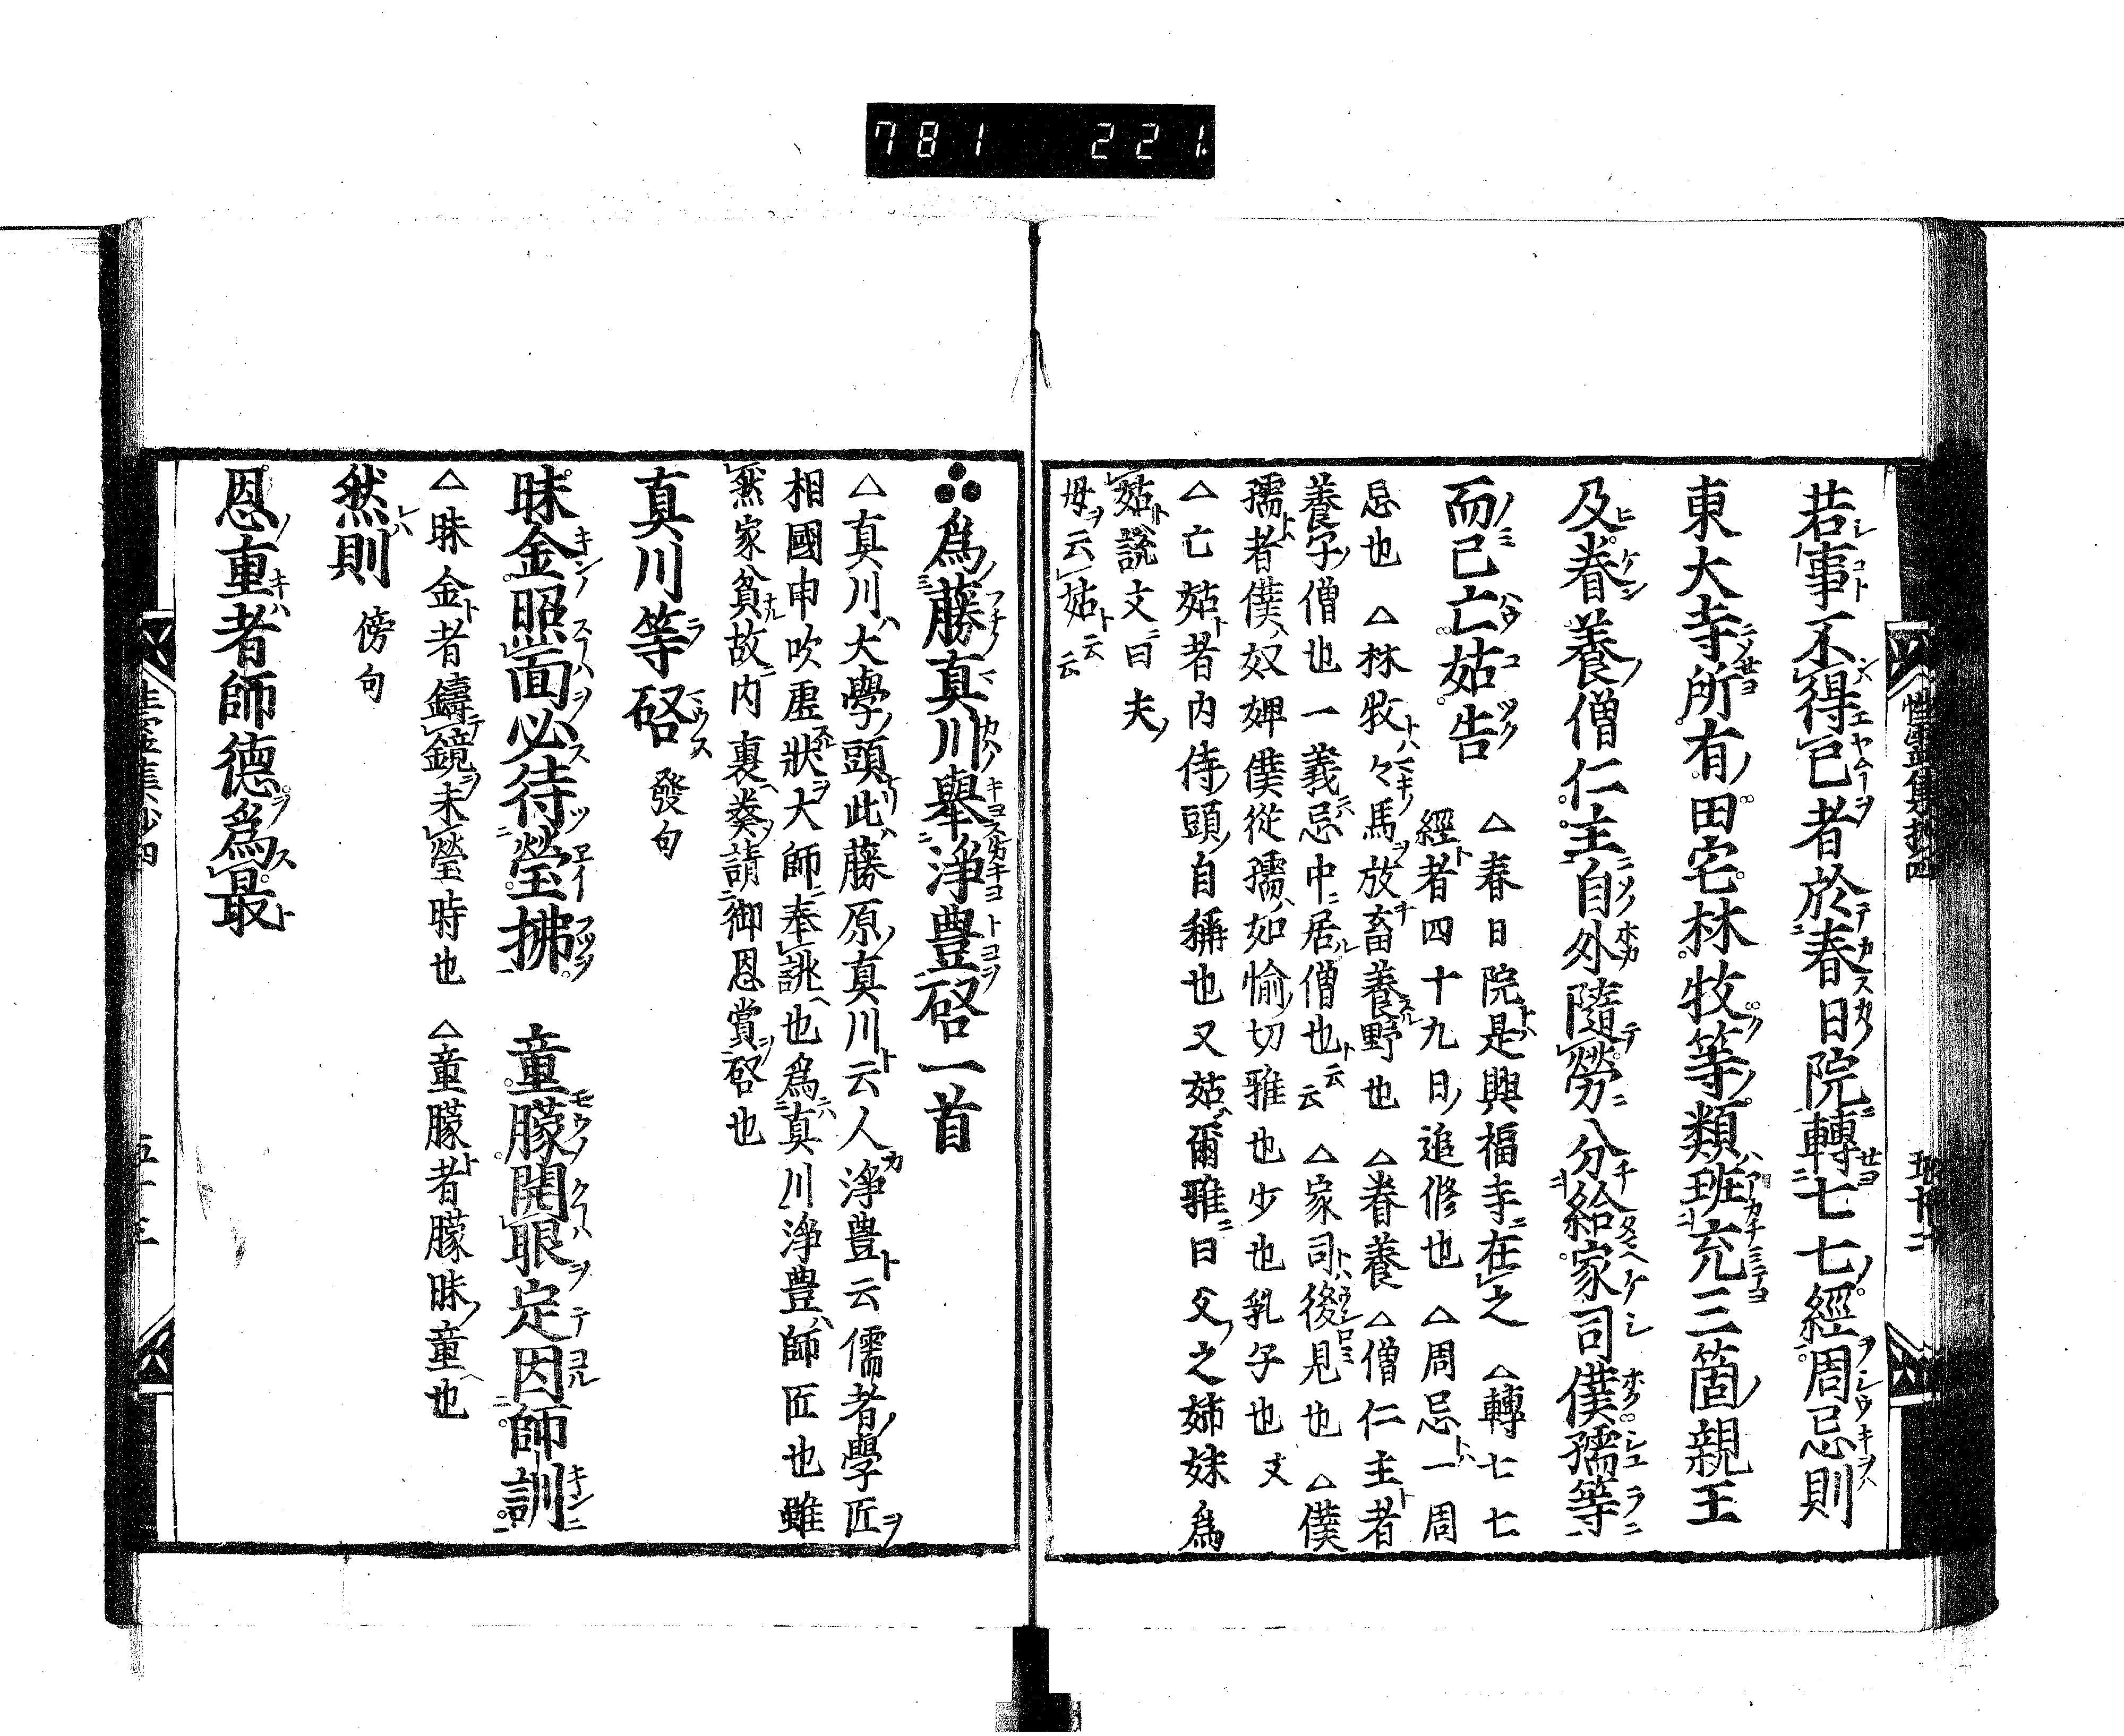 781 221
若事不得已者於春日院轉七七經周忌則
東大寺所有田宅林牧等類班充三箇親王
及眷養僧仁主自外隨勞分給家司僕孺等
而已亡姑告 △春日院是興福寺在之 △轉七七
經者四十九日追修也 △周忌一周
忌也 △林牧々馬放畜養野也 △眷養 △僧仁主者
養子僧也一義忌中居僧也云云 △家司後見也 △僕
孺者僕奴婢僕從孺如愉切雅也少也乳子也文
△亡姑者内侍頭自稱也又姑爾雅曰父之姉妹為
姑說文曰夫
母云姑云云
性靈集抄四
五十二
為藤真川舉淨豊啓一首
△真川大學頭此藤原真川云人淨豊云儒者學匠
相國申吹虛狀大師奉誂也為真川淨豊師匠也雖
然家貧故内裏奏請御恩賞啓也
真川等啓 發句
昧金照面必待瑩拂 童朦開眼定因師訓
△昧金者鑄鏡未瑩時也 △童朦者朦昧童也
然則 傍句
恩重者師德為最
性靈集抄四
五十三